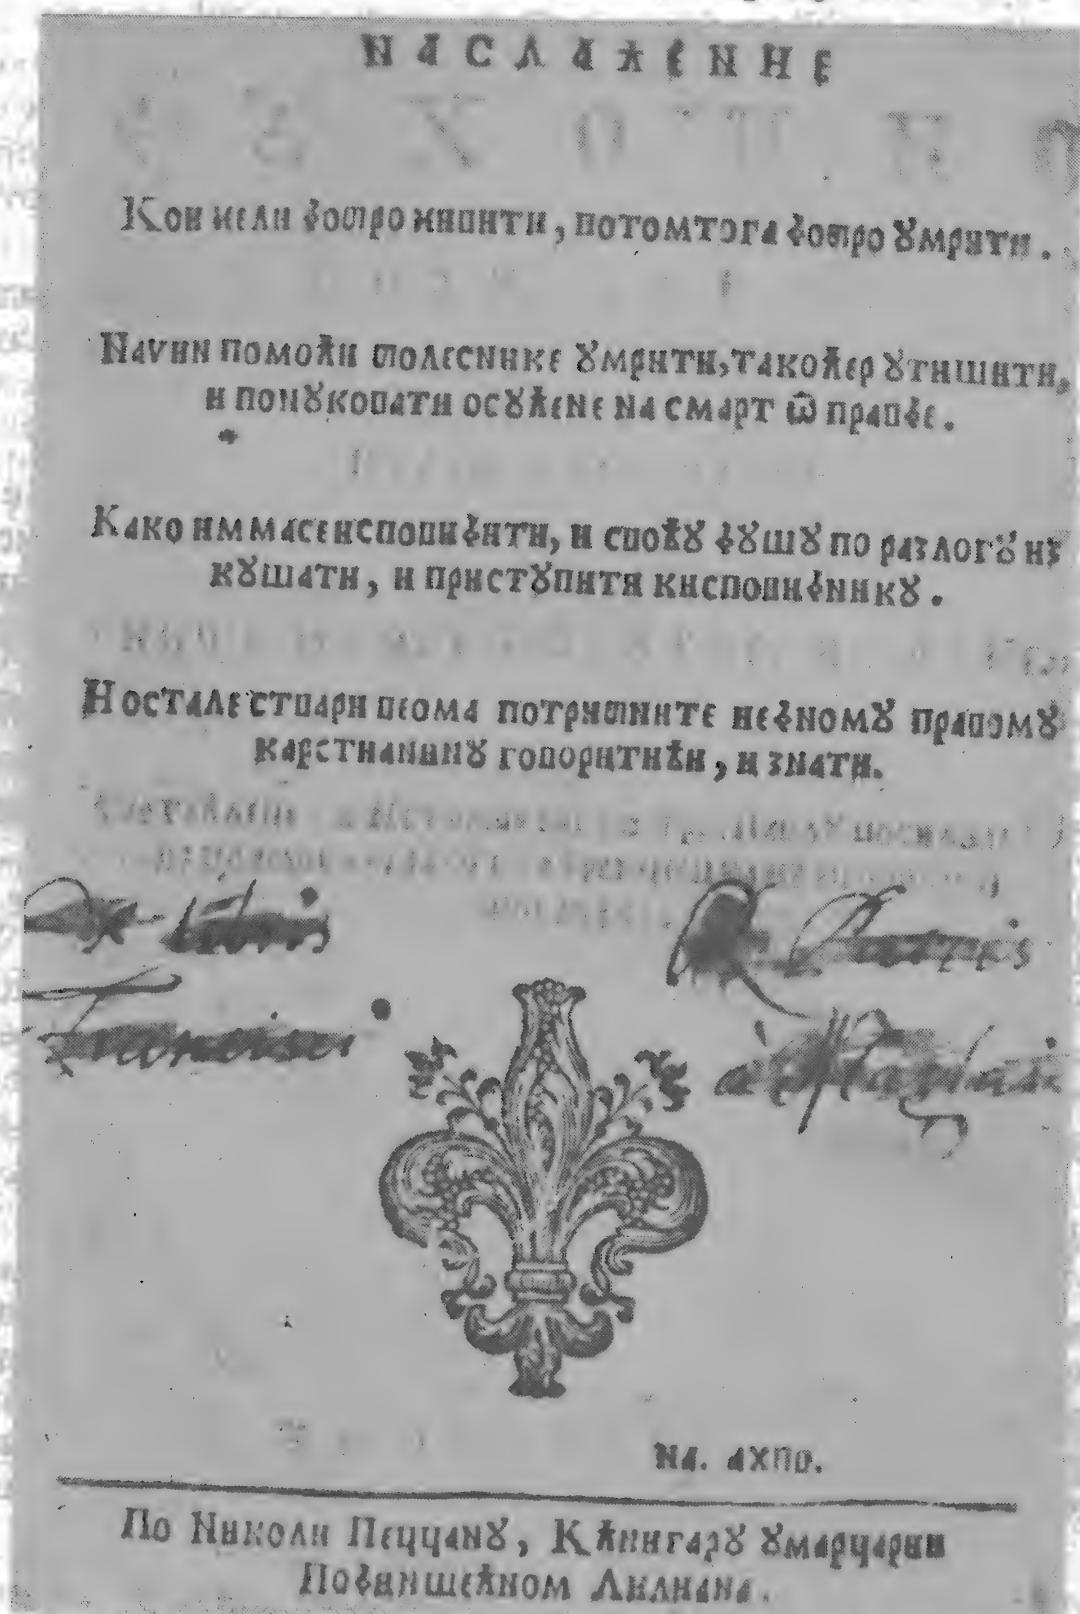 НАСЛАꙈЕНИЕ
Кои жели добро живити, потомтога добро Ꙋмрити.
Начин помоꙉи болеснике Ꙋмрити, такоꙉер Ꙋтишити,
и понꙊковати осꙊꙉене на смарт ѿ правде.
Како им масе исповидити, и своꙉꙊ дꙊшꙊ по разлогꙊ из
кꙊшати, и пристꙊпити к исповидникꙊ.
И остале ствари веома потрибните иедномꙊ правомꙊ
карстианинꙊ говоритиꙉи, и знати.
libris
Francisci
НА. АХПВ.
По Николи ПеццанꙊ, КꙉнигарꙊ Ꙋмарчарии
Подиншеꙉном Лилиана.